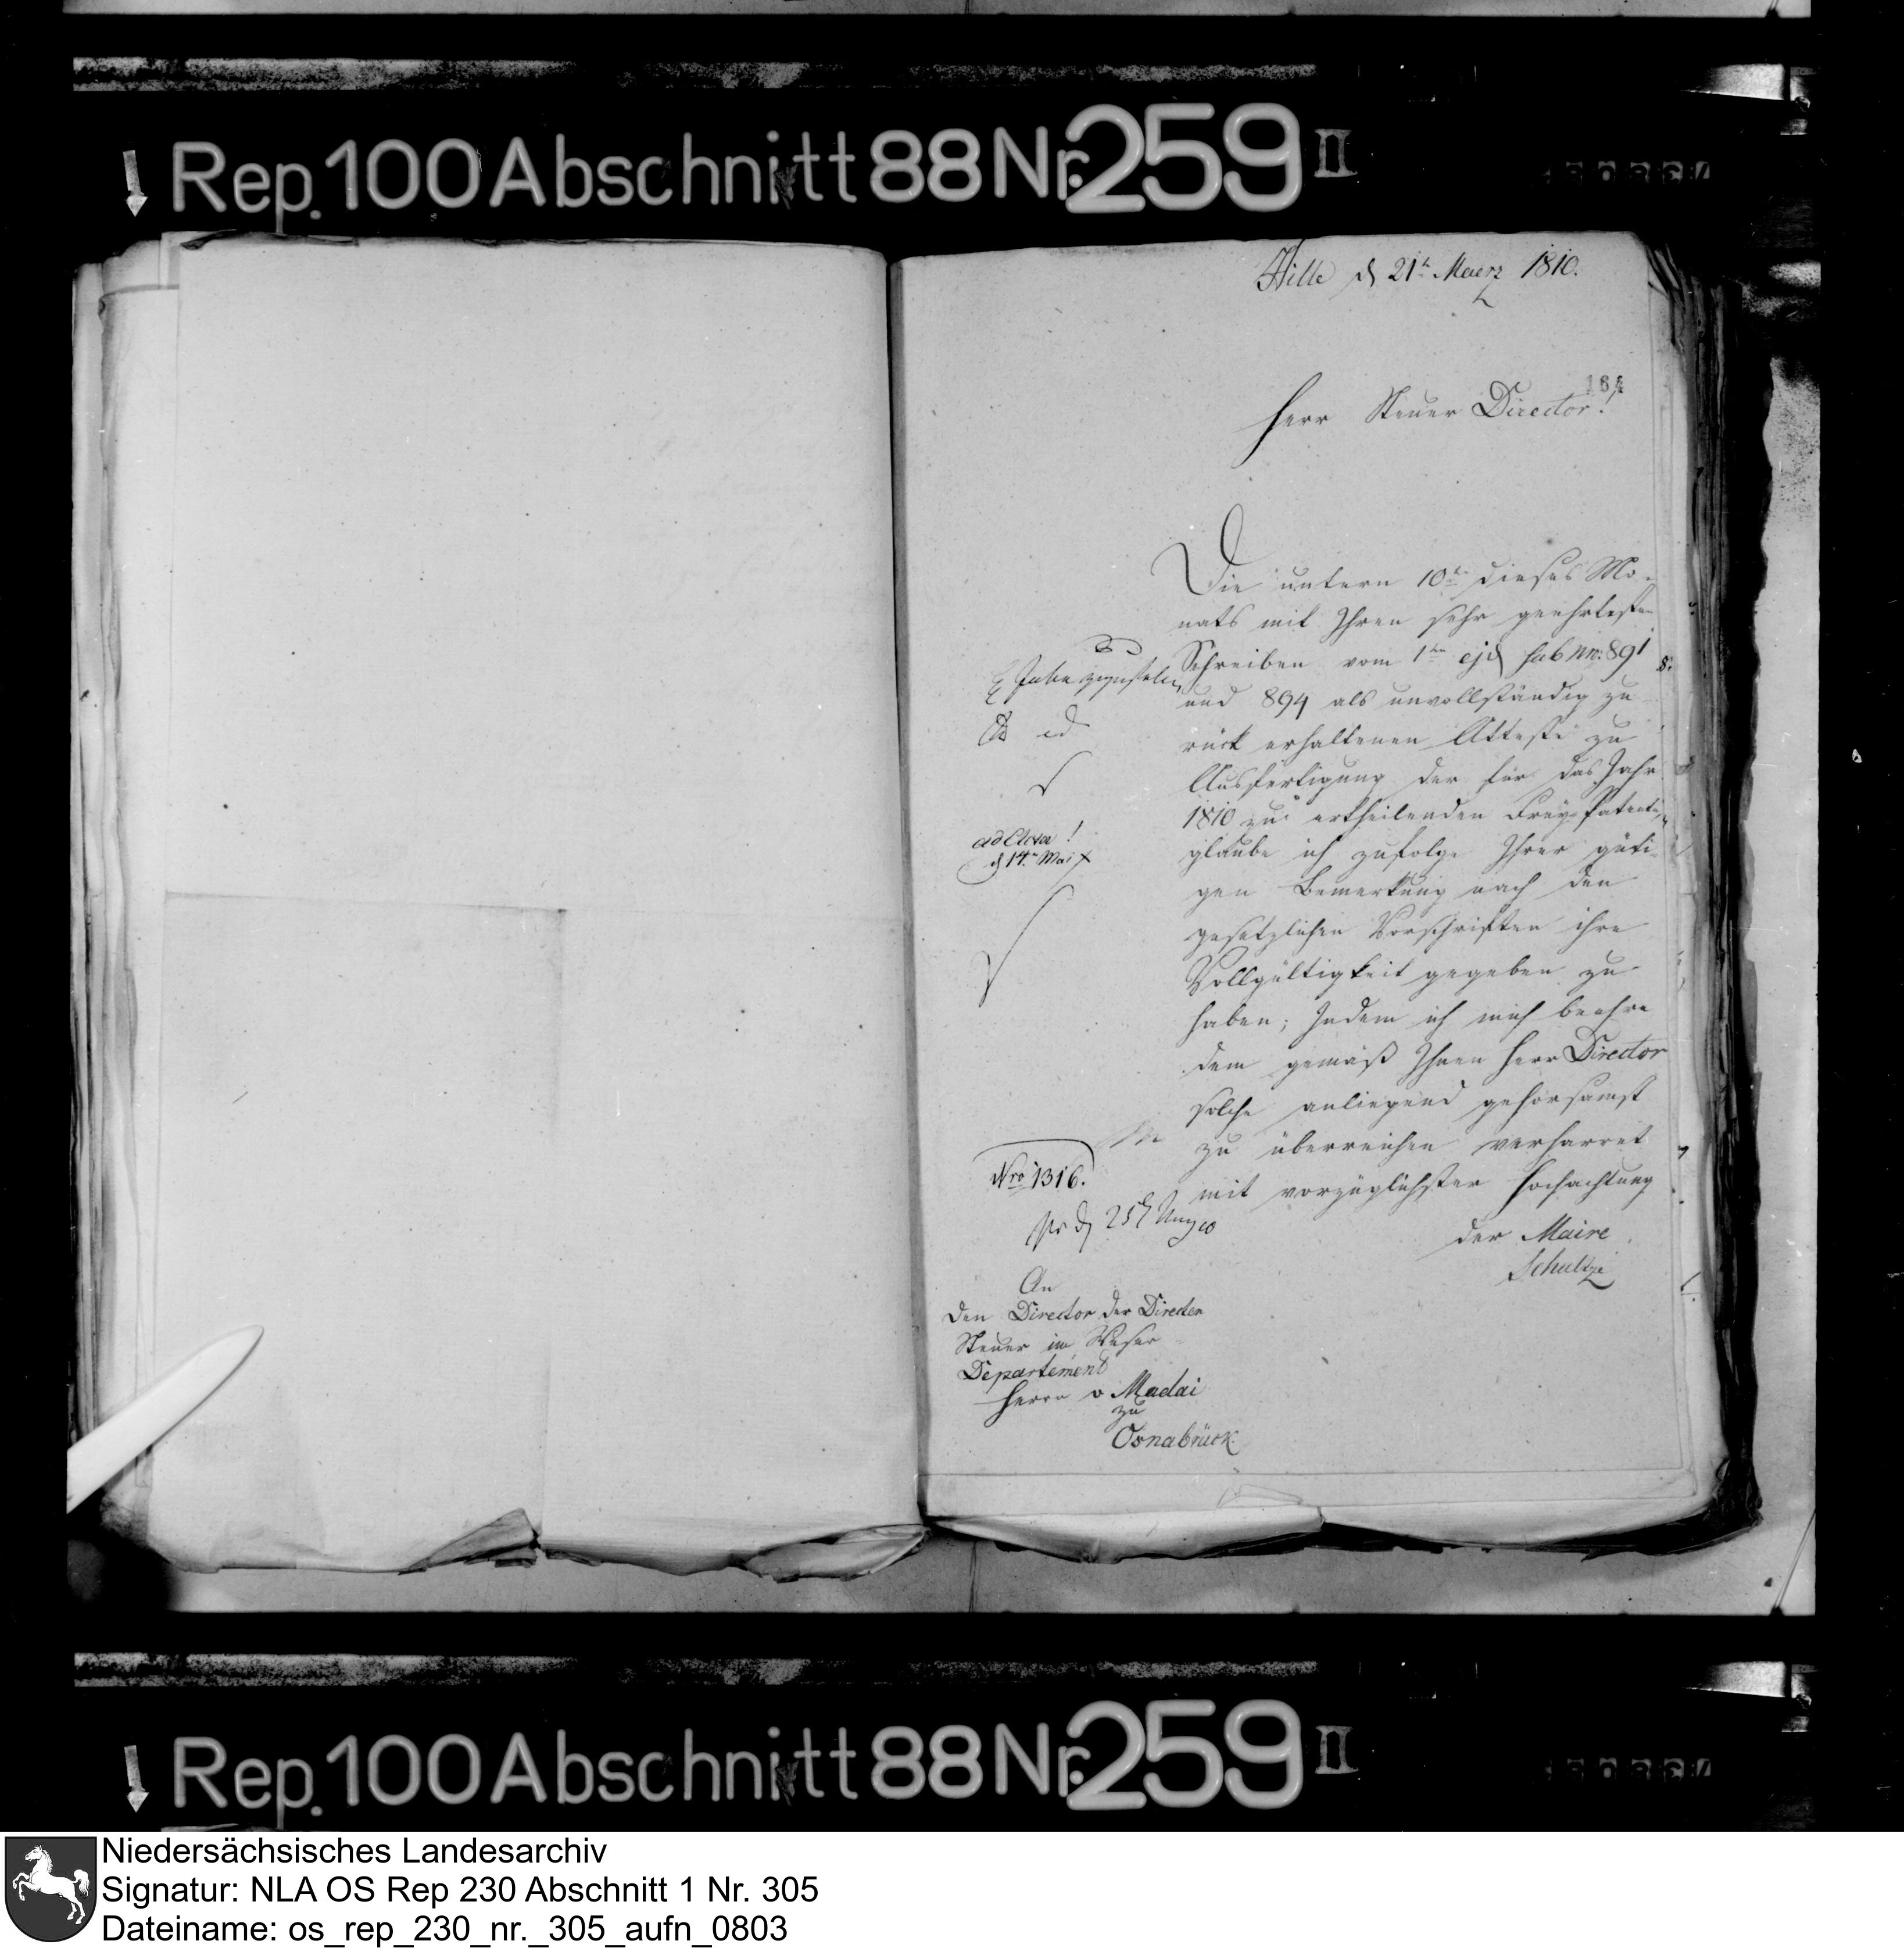 Rep. 100 Abschnitt 88 Nr. 259 II
Hille d 21t. Maerz 1810.
184
Herr Steuer Director!
Die untern 10ten dieses Mo-
nats mit Ihren sehr geehrtesten
Schreiben vom 1ten ejd sub nro: 891
und 894 als unvollständig zu
rück erhaltenen Atteste zu
Ausfertigung der für das Jahr
1810 zu ertheilenden Frey-Patente,
glaube ich zufolge Ihrer güti-
gen Bemerkung nach den
gesetzlichen Vorschriften ihre
Vollgültigkeit gegeben zu
haben; Indem ich mich beehre
dem gemäß Ihnen Herr Director
solche anliegend gehorsamst
zu überreichen verharret
mit vorzüglichster Hochachtung
der Maire
Schultze
ad Acta!
d 14.n Mai
Nro 1316.
An
den Director der Directen
Steuer im Weser-
Departement
Herrn v Madai
zu
Osnabrück.
Rep. 100 Abschnitt 88 Nr. 259 II
Niedersächsisches Landesarchiv
Signatur: NLA OS Rep 230 Abschnitt 1 Nr. 305
Dateiname: os_rep_230_nr._305_aufn_0803